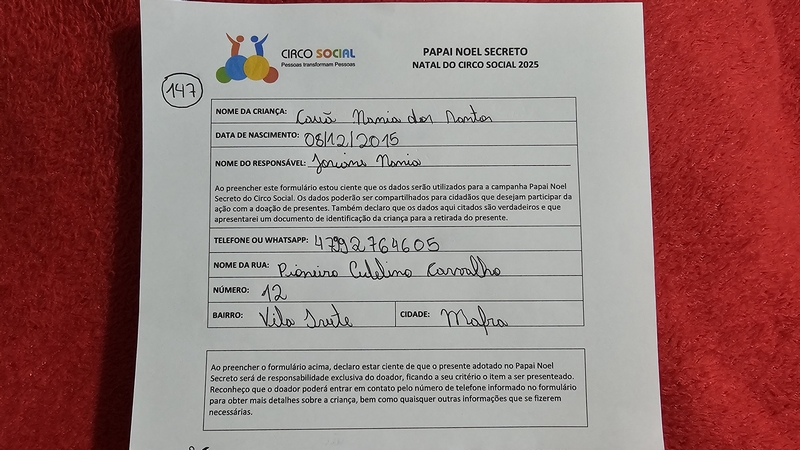 CIRCO SOCIAL
Pessoas transformam Pessoas
PAPAI NOEL SECRETO
NATAL DO CIRCO SOCIAL 2025
147
NOME DA CRIANÇA: Cauã Nania dos Santos
DATA DE NASCIMENTO: 08/12/2015
NOME DO RESPONSÁVEL: Josiane Nania
Ao preencher este formulário estou ciente que os dados serão utilizados para a campanha Papai Noel
Secreto do Circo Social. Os dados poderão ser compartilhados para cidadãos que desejam participar da
ação com a doação de presentes. Também declaro que os dados aqui citados são verdadeiros e que
apresentarei um documento de identificação da criança para a retirada do presente.
TELEFONE OU WHATSAPP: 47992764605
NOME DA RUA: Pioneiro Cidelino Carvalho
NÚMERO: 12
BAIRRO: Vila Ivete CIDADE: Mafra
Ao preencher o formulário acima, declaro estar ciente de que o presente adotado no Papai Noel
Secreto será de responsabilidade exclusiva do doador, ficando a seu critério o item a ser presenteado.
Reconheço que o doador poderá entrar em contato pelo número de telefone informado no formulário
para obter mais detalhes sobre a criança, bem como quaisquer outras informações que se fizerem
necessárias.